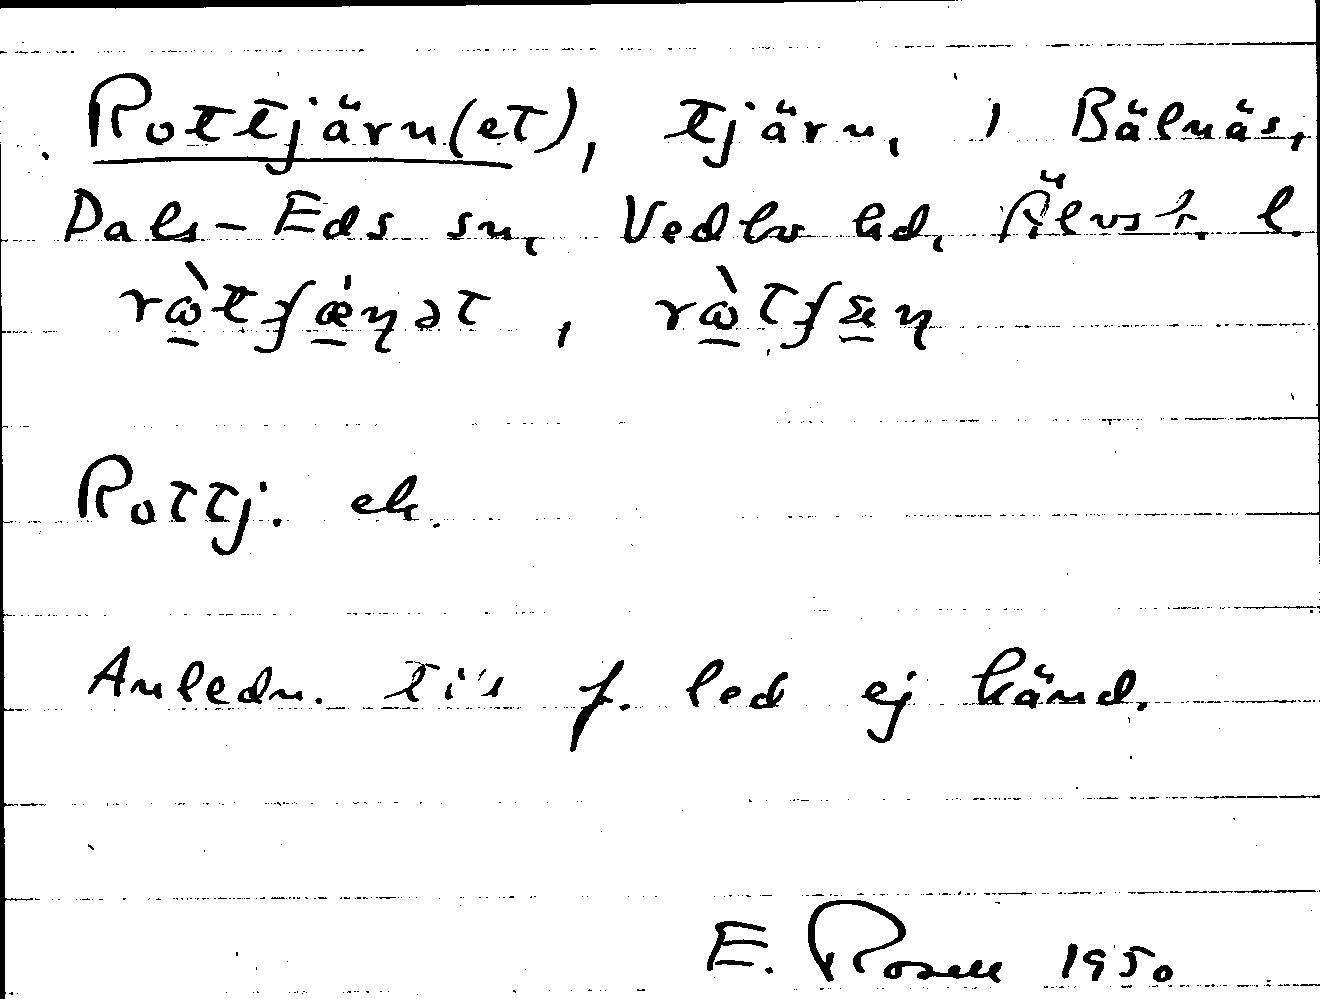 Rottjärn(et), tjärn, i Bälnäs,
Dals-Eds sn, Vedbo hd, Älvsb. l.
rὼ̠tʃǽ̠ŋət, rὼ̠tʃæ̠ŋ
Rottj. ek.
Anledn. till f. led ej känd.
E. Rosell 1950